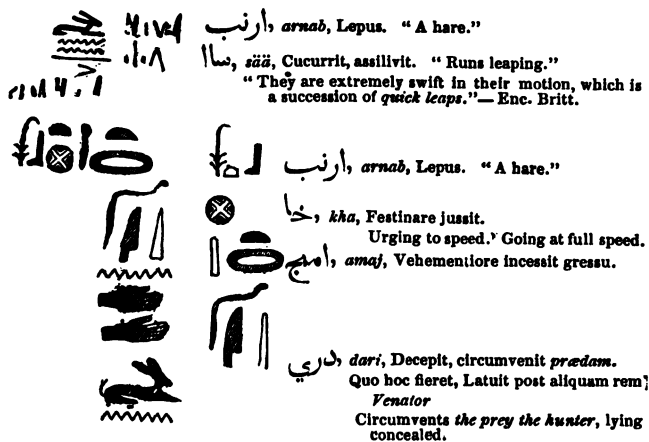 ارنب, arnab, Lepus. "A hare."
ساا, sää, Cucurrit, assilivit. "Runs leaping."
"They are extremely swift in their motion, which is
a succession of quick leaps."— Enc. Britt.
ارنب, arnab, Lepus. "A hare."
خبا, kha, Festinare jussit.
Urging to speed. Going at full speed.
امج, amaj, Vehementiore incessit gressu.
دري, dari, Decepit, circumvenit prædam.
Quo hoc fieret, Latuit post aliquam rem;
Venator
Circumvents the prey the hunter, lying
concealed.